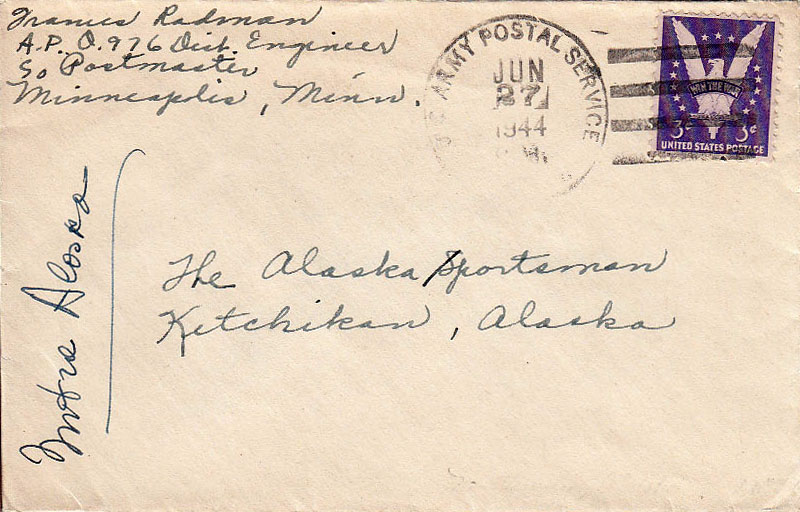 Frances Radman
A.P.O. 976 Dist. Engineer
So Postmaster
Minneapolis, Minn.
ARMY POSTAL SERVICE
JUN
27
1944
WIN THE WAR
3¢ 3¢
UNITED STATES POSTAGE
The Alaska Sportsman
Ketchikan, Alaska
Alaska